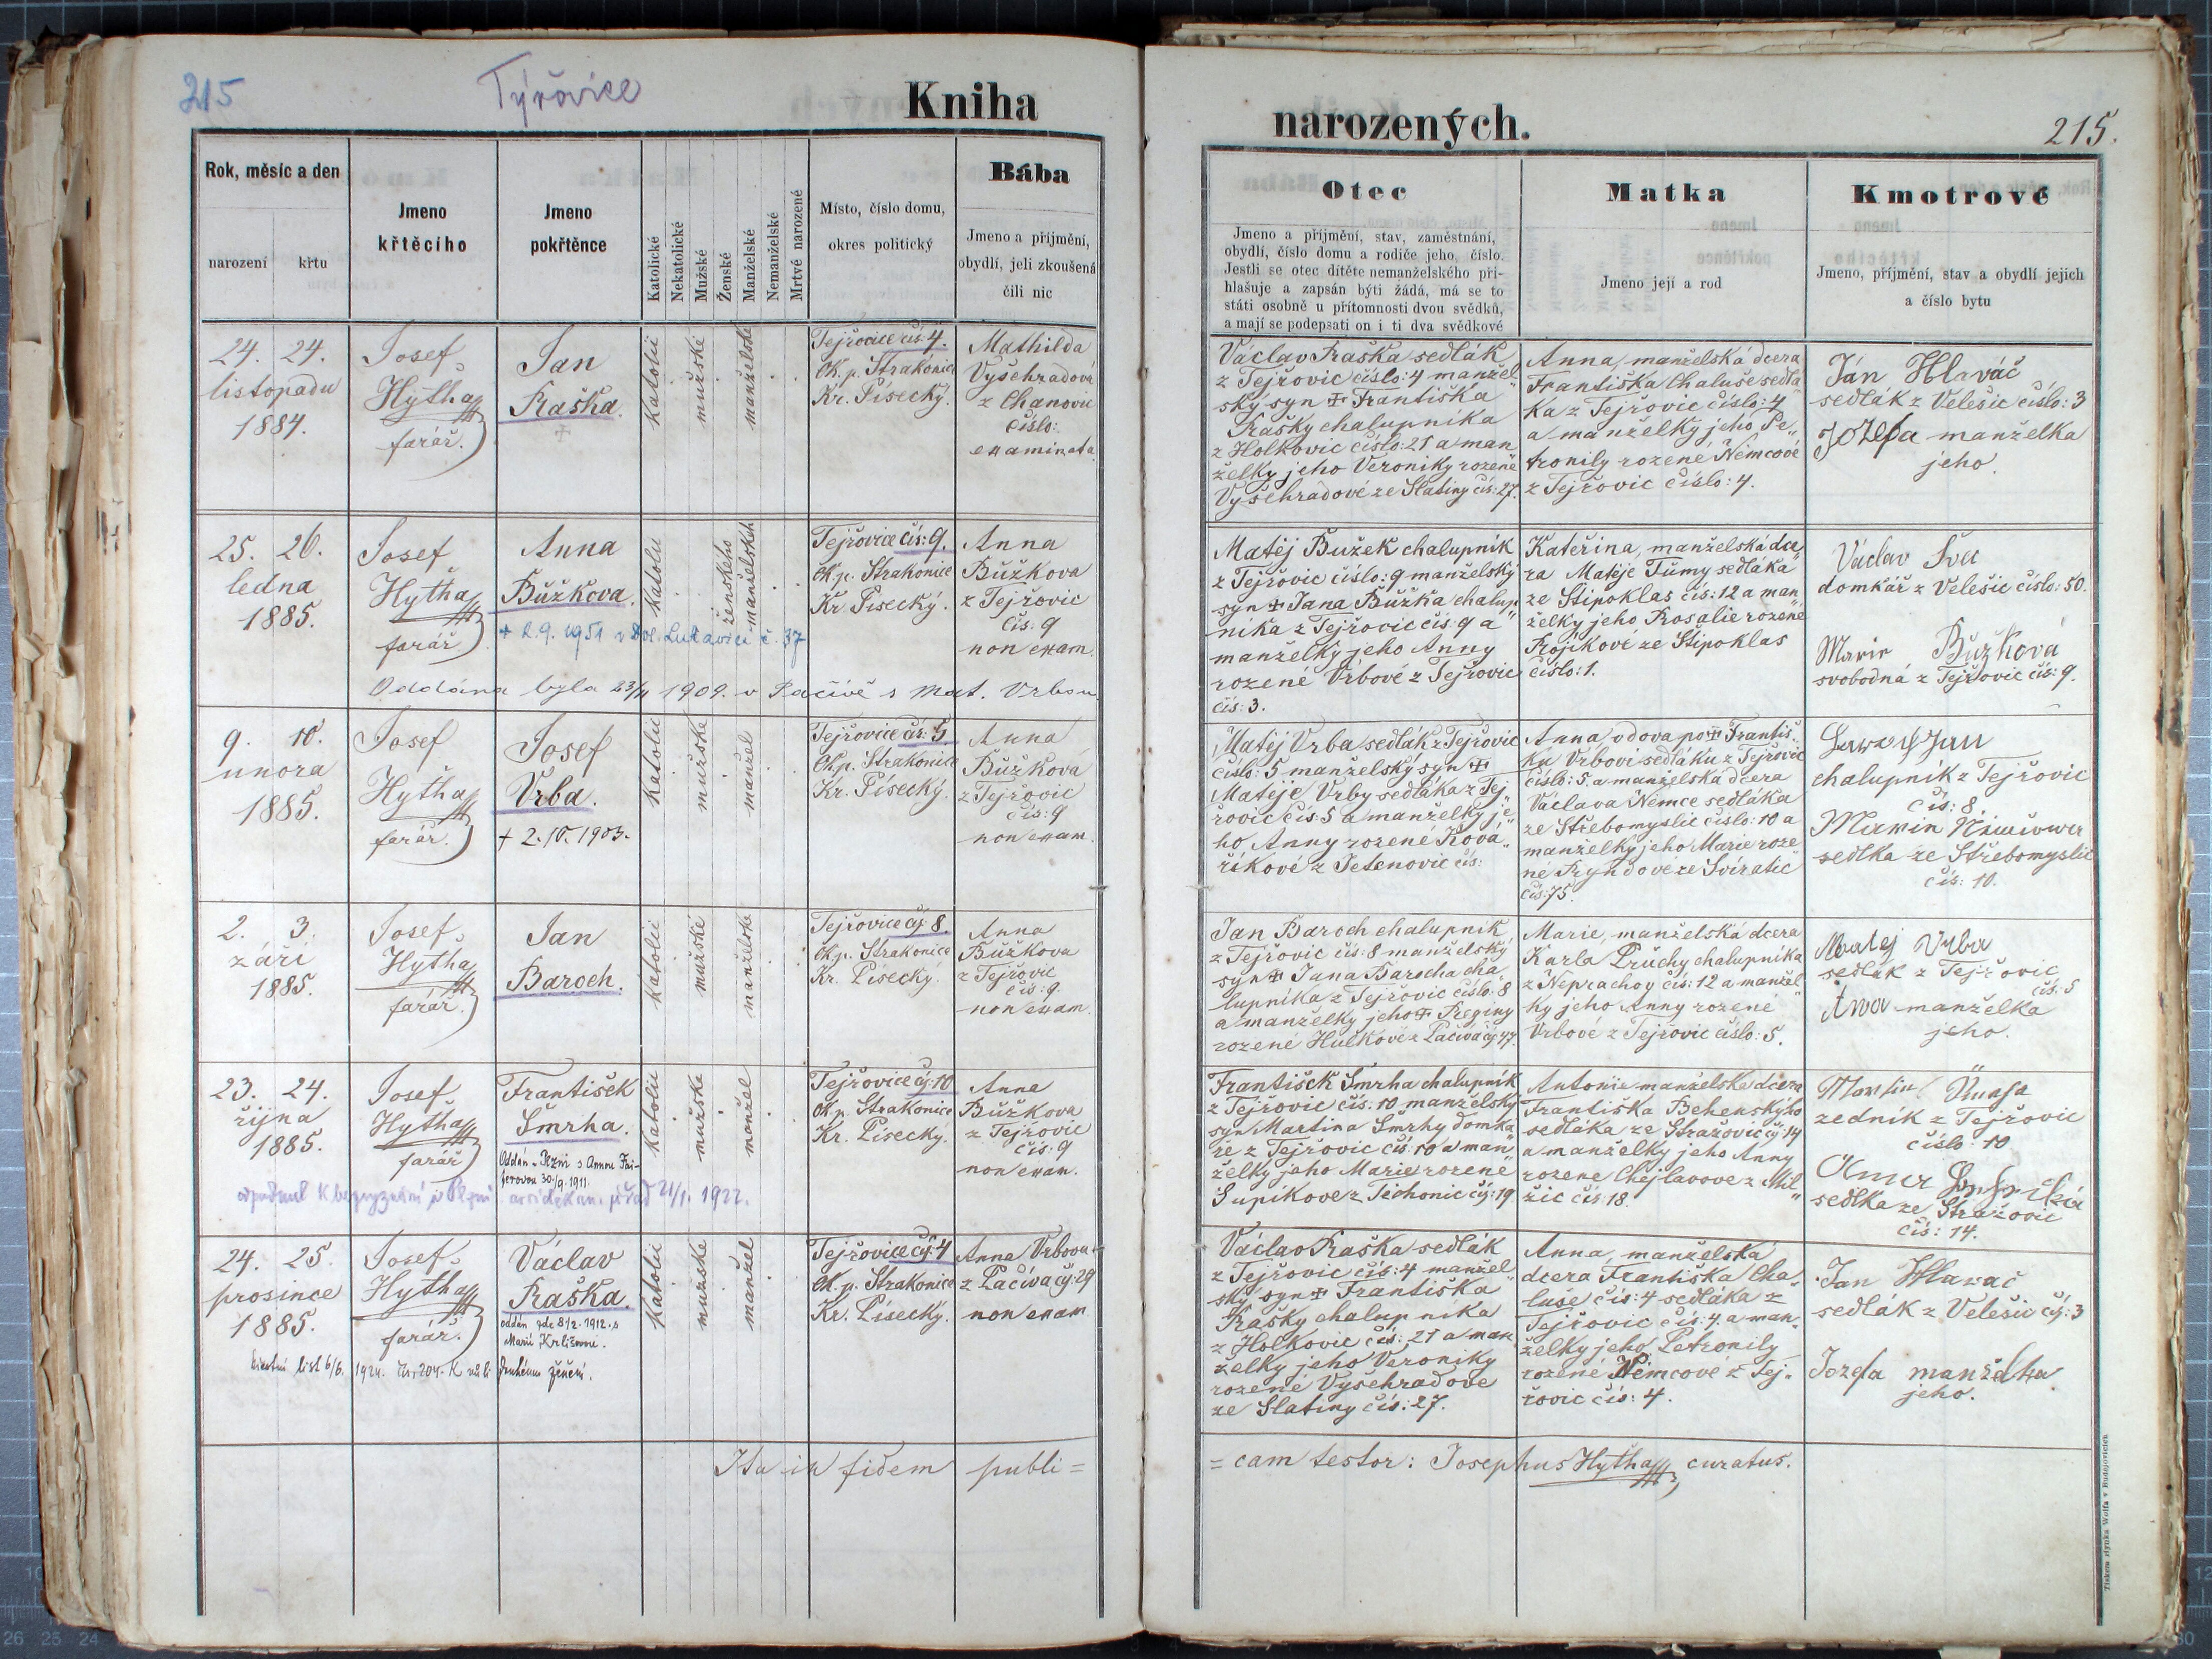 215
Týřovice
Kniha
narozených.
215.
Rok, měsíc a den
narození
křtu
Jmeno
křtěcího
Jmeno
pokřtěnce
Katolické
Nekatolické
Mužské
Ženské
Manželské
Nemanželské
Mrtvé narozené
Místo, číslo domu,
okres politický
Bába
Jmeno a příjmění,
obydlí, jeli zkoušená
čili nic
Otec
Jmeno a příjmění, stav, zaměstnání,
obydlí, číslo domu a rodiče jeho, číslo.
Jestli se otec dítěte nemanželského při-
hlašuje a zapsán býti žádá, má se to
státi osobně u přítomnosti dvou svědků,
a mají se podepsati on i ti dva svědkové
Matka
Jmeno její a rod
Kmotrové
Jmeno, příjmění, stav a obydlí jejich
a číslo bytu
24. 24.
listopadu
1884.
Josef
Hytha
farář.
Jan
Raška.
katolic
mužské
manželské
Tejřovice čís: 4.
Ok. p. Strakonice
Kr. Písecký.
Mathilda
Vyšehradová
z Chanovic
číslo:
examinata
Václav Raška sedlák
z Tejřovic číslo: 4 manžel„
ský syn ✝ Františka
Rašky chalupníka
z Holkovic číslo: 21 a man„
želky jeho Veroniky rozené
Vyšehradové ze Slatiny čís: 27.
Anna, manželská dcera
Františka Chaluše sedlá„
ka z Tejřovic číslo: 4
a manželky jeho Pe„
tronily rozené Němcové
z Tejřovic číslo: 4.
Ján Hlaváč
sedlák z Velešic číslo: 3
Jozefa manželka
jeho.
25. 26.
ledna
1885.
Josef
Hytha
farář
Anna
Bůžkova.
+ 2.9.1951 v Dol. Lukavici č. 37
Oddána byla 23/11 1909. v Pačivě s Mat. Vrbou
katolic
ženského
manželských
Tejřovice čís: 9.
Ok. p. Strakonice
Kr. Písecký.
Anna
Bůžkova
z Tejřovic
čís. 9
non exam.
Matěj Bužek chalupník
z Tejřovic číslo: 9 manželský
syn ✝ Jana Bůžka chalup„
níka z Tejřovic čís: 9 a
manželky jeho Anny
rozené Vrbové z Tejřovic
čís: 3.
Kateřina, manželská dce„
ra Matěje Tůmy sedláka
ze Štipoklas čís: 12 a man„
želky jeho Rosalie rozené
Rojíkové ze Štipoklas
číslo: 1.
Václav Švec
domkář z Velešic číslo: 50.
Marie Bužková
svobodná z Tejřovic čís: 9.
9. 10.
unora
1885.
Josef
Hytha
farář.
Josef
Vrba.
+ 2. 10. 1903.
katolic
mužské
manžel
Tejřovice čís: 5.
Ok. p. Strakonice
Kr. Písecký.
Anna
Bůžkova
z Tejřovic
čís: 9
non exam.
Matěj Vrba sedlák z Tejřovic
číslo: 5 manželský syn ✝
Matěje Vrby sedláka z Tej„
řovic čís: 5 a manželky je„
ho Anny rozené Ková„
říkové z Tetenovic čís:
Anna vdova po ✝ Františ„
ku Vrbovi sedláku z Tejřovic
číslo: 5. a manželská dcera
Václava Němce sedláka
ze Střebomyslic číslo: 10 a
manželky jeho Marie roze„
né Ryndové ze Svíratic
čís: 75.
Jan
chalupník z Tejřovic
čís: 8
Marie Němcowa
sedlka ze Střebomyslic
čís: 10.
2. 3.
září
1885.
Josef
Hytha
farář.
Jan
Baroch.
katolic
mužské
manželské
Tejřovice čj: 8.
Ok. p. Strakonice
Kr. Písecký.
Anna
Bůžkova
z Tejřovic
čís: 9.
non exam.
Jan Baroch chalupník
z Tejřovic čís: 8 manželský
syn ✝ Jana Barocha cha„
lupníka z Tejřovic číslo: 8
a manželky jeho ✝ Reginy
rozené Hůlkové z Pačiva čj: 47.
Marie, manželská dcera
Karla Průchy chalupníka
z Neprachov čís: 12 a manžel„
ky jeho Anny rozené
Vrbove z Tejřovic číslo: 5.
Matej Vrba
sedlák z Tejřovic
čís: 5
Anna manželka
jeho.
23. 24.
října
1885.
Josef
Hytha
farář
František
Šmrha.
Oddán v Plzni s Annou Fai-
ferovou 30./9. 1911.
odpadnul k bezvyznání v Plzni arciděkan. úřad 21/1. 1922.
katolic
mužské
manžel
Tejřovice čj: 10
Ok. p. Strakonice
Kr. Písecký.
Anna
Bůžkova
z Tejřovic
čís: 9
non exam.
František Šmrha chalupník
z Tejřovic čís: 10 manželský
syn Martina Šmrhy domká„
ře z Tejřovic čís: 10 a man„
želky jeho Marie rozené
Šupíkove z Těchonic čj: 19
Antonie manželská dcera
Františka Behenského
sedláka ze Stražovic čj: 14
a manželky jeho Anny
rozene Chejlavove z Mil„
žic čís: 18.
Martin Šmrha
zedník z Tejřovic
číslo: 10
Anna
sedlka ze Stražovic
čís: 14.
24. 25.
prosince
1885.
Josef
Hytha
farář.
Václav
Raška.
oddán zde 8/2. 1912. s
Marií Krlišovou.
křestní list 6/6. 1924. čís. 204. K vůli druhému ženění.
katolic
mužské
manžel
Tejřovice čj: 4
Ok. p. Strakonice
Kr. Písecký.
Anna Vrbova
z Pačiva čj: 29
non exam
Václav Raška sedlák
z Tejřovic čís: 4 manžel„
ský syn ✝ Františka
Rašky chalupníka
z Holkovic čís: 21 a man„
želky jeho Veroniky
rozené Vyšehradove
ze Slatiny čís: 27.
Anna, manželská
dcera Františka Cha„
luše čís: 4 sedláka z
Tejřovic čís: 4. a man„
želky jeho Petronily
rozené Němcové z Tej„
řovic čís: 4.
Jan Hlavač
sedlák z Velešic čj: 3
Jozefa manželka
jeho.
Ita in fidem publi=
=cam testor: Josephus Hytha, curatus.
Tiskem Wolfa v Budějovicích